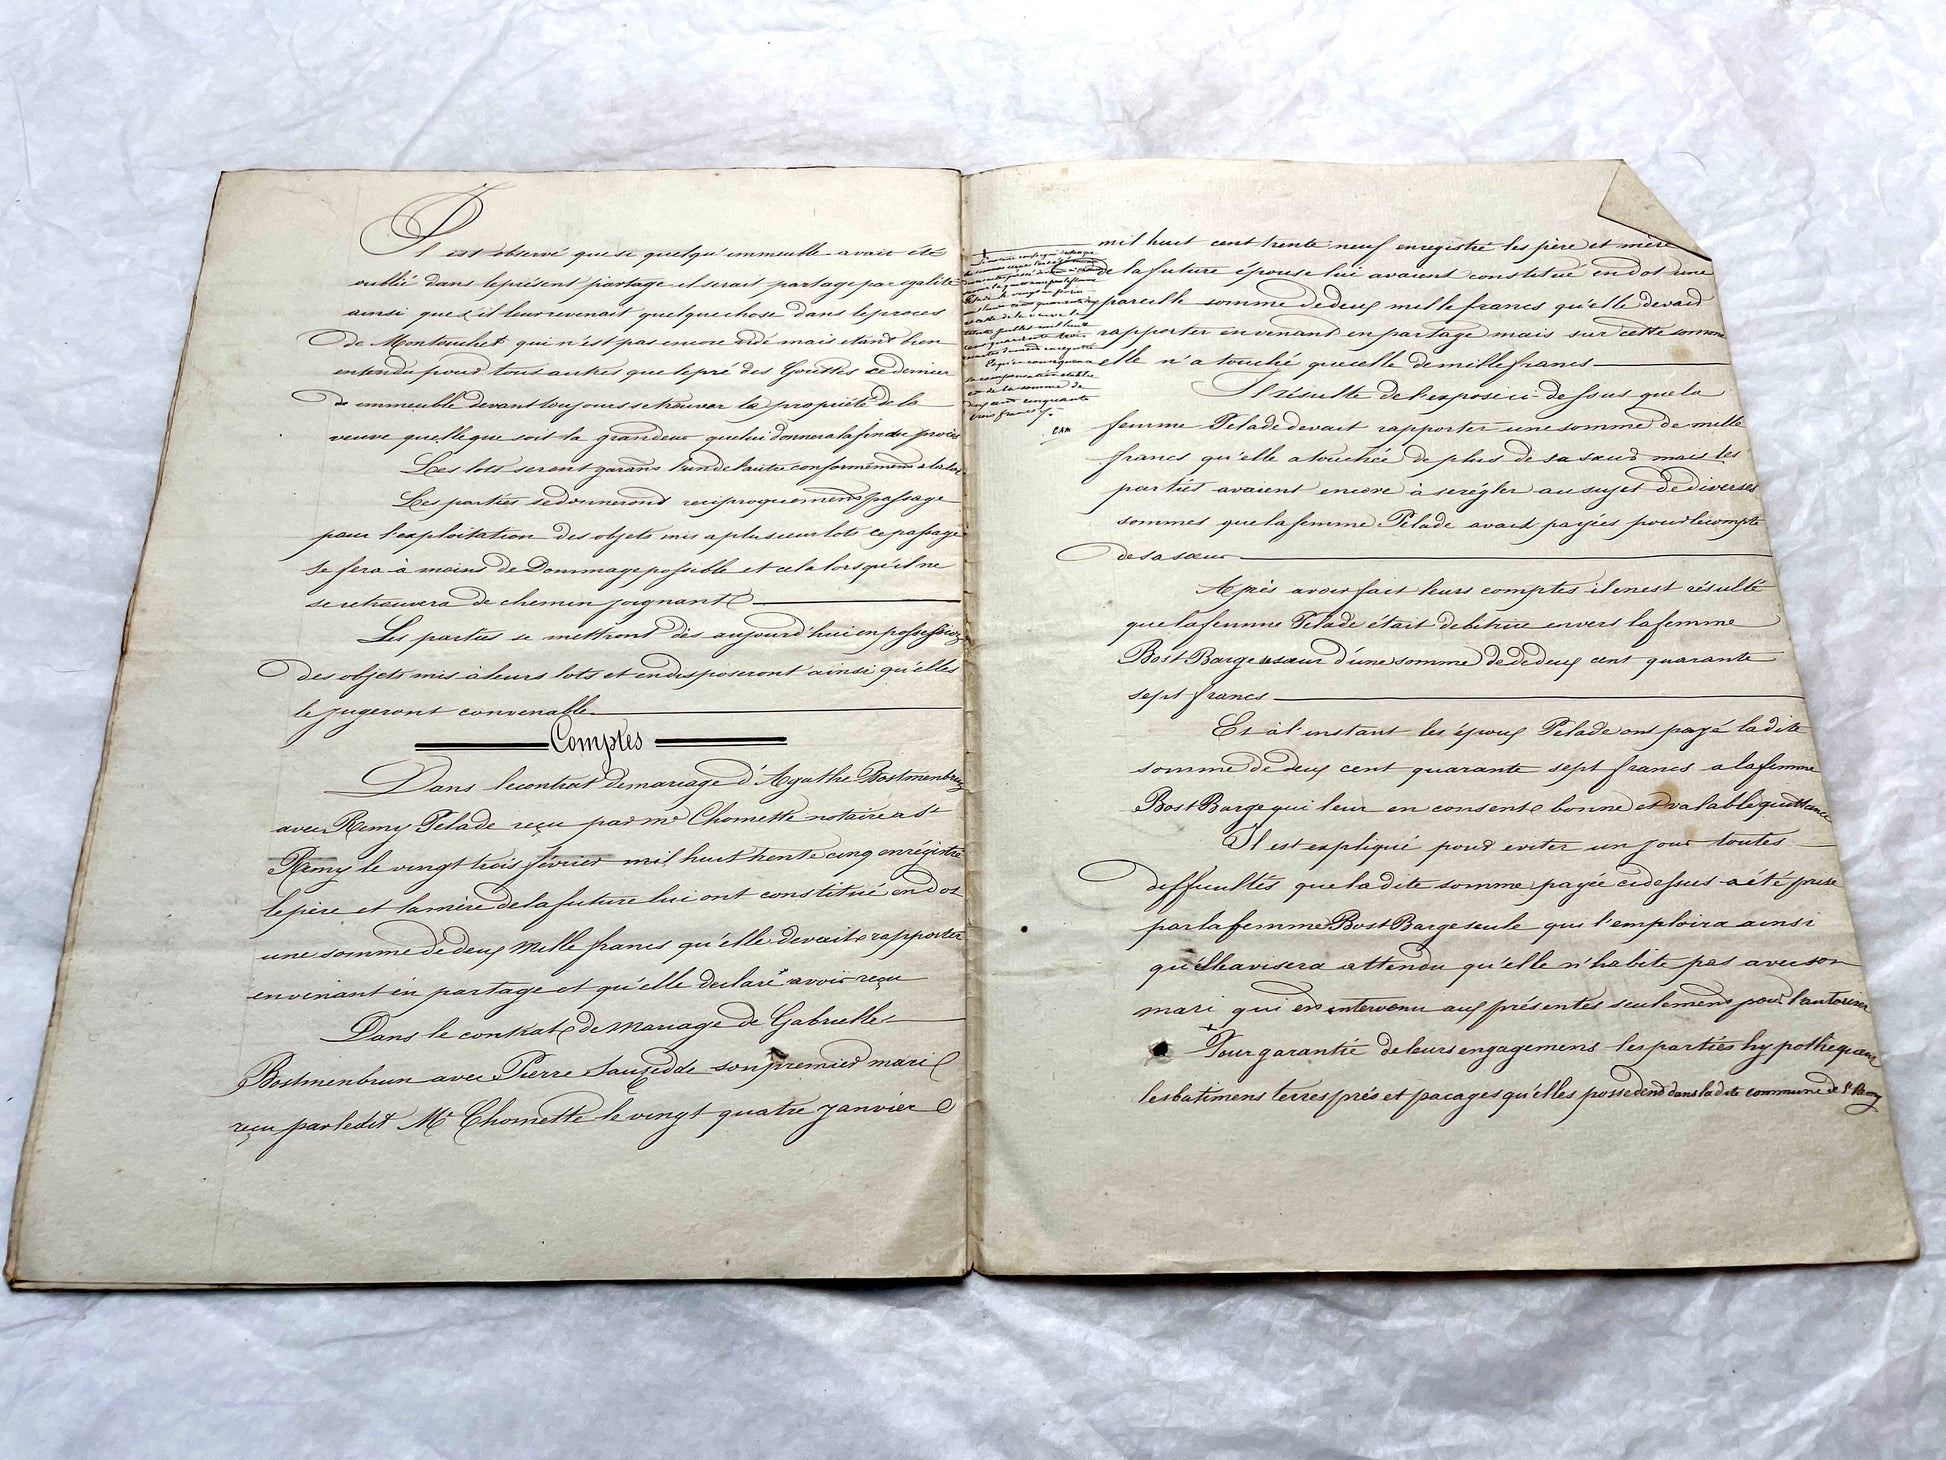 Il est observé que si quelqu'immeuble avait été
oublié dans le présent partage il serait partagé par egalité
ainsi que s'il leur revenait quelque chose dans le proces
de Montouchet qui n'est pas encore vidé mais etant bien
entendu pour tous autres que le pré des Gouttes ce dernier
immeuble devant toujours se trouver la propriété de la
veuve quelle que soit la grandeur que lui donnera la fin du procès
Les lots seront garans l'un de l'autre conformement à la loi
Les parties se donneront reciproquement passage
pour l'exploitation des objets mis a plusieurs lots ce passage
se fera à moins de Dommage possible et cela lorsqu'il ne
se retrouvera de chemin joignant
Les parties se mettront dès aujourd'hui en possession
des objets mis à leurs lots et en disposeront ainsi qu'elles
le jugeront convenable
Comptes
Dans le contrat de mariage d'Agathe Bostmenbrun
avec Remy Pelade reçu par me Chomette notaire a St
Remy le vingt trois février mil huit trente cinq enrégistré
le père et la mère de la future lui ont constitué en dot
une somme de deux Mille francs qu'elle devait rapporter
en venant en partage et qu'elle declare avoir reçu
Dans le contrat de Mariage de Gabrielle
Bostmenbrun avec Pierre Sauzedde son premier mari
reçu par ledit Me Chomette le vingt quatre janvier
mil huit cent trente neuf enregistré les père et mère
de la future épouse lui avaient constitué en dot une
pareille somme de deux mille francs qu'elle devait
rapporter en venant en partage mais sur cette somme
elle n'a touché que celle de mille francs
Il résulte de l'exposé ci-dessus que la
femme Pelade devait rapporter une somme de mille
francs qu'elle a touchée de plus de sa sœur mais les
parties avaient encore à se régler au sujet de diverses
sommes que la femme Pelade avait payées pour le compte
de sa sœur
Après avoir fait leurs comptes il en est résulté
que la femme Pelade était debitrice envers la femme
Bost Barge sa sœur d'une somme de dedeux cent quarante
sept francs
Et à l'instant les époux Pelade ont payé la dite
somme de deux cent quarante sept francs a la femme
Bost Barge qui leur en consent bonne et valable quittance
Il est expliqué pour eviter un jour toutes
difficultés que la dite somme payée cidessus a été prise
par la femme Bost Barge seule qui l'emploira ainsi
qu'elle avisera attendu qu'elle n'habite pas avec son
mari qui est intervenu aux présentes seulement pour l'autoriser
Pour garantie de leurs engagemens les parties hypothèquent
les batimens terres prés et pacages qu'elles possedent dans la dite commune de St Remy